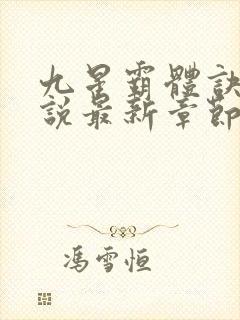 九星霸體訣
說最新章節
馮雪恒